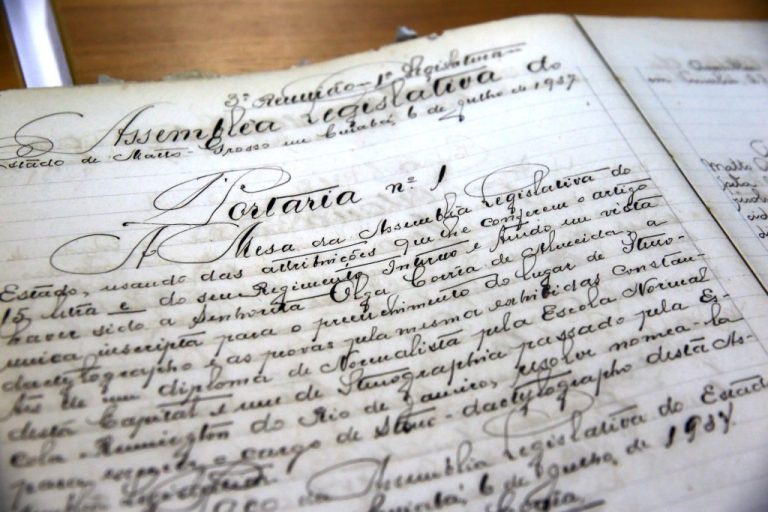 3ª Reunião - 1ª Legislatura
Assembléa Legislativa do
Estado de Matto-Grosso em Cuiabá, 6 de Julho de 1937
Portaria nº 1
A Mesa da Assembléa Legislativa do
Estado, usando das attribuições que lhe conferem o artigo
15 letra e do seu Regimento Interno e tendo em vista
haver sido a Senhorita Olga Corrêa de Almeida, a
unica inscripta para o preenchimento do lugar de Steno-
dactylographo e as provas pela mesma exhibidas constan-
tes de um diploma de Normalista pela Escola Normal
desta Capital e um de Stenographia passado pela Es-
cola Remington do Rio de Janeiro, resolve nomea-la
para exercer o cargo de Steno-dactylographo desta As-
sembléa Legislativa.
Paço da Assembléa Legislativa do Estado
Cuiabá, 6 de Julho, de 1937.
Matto